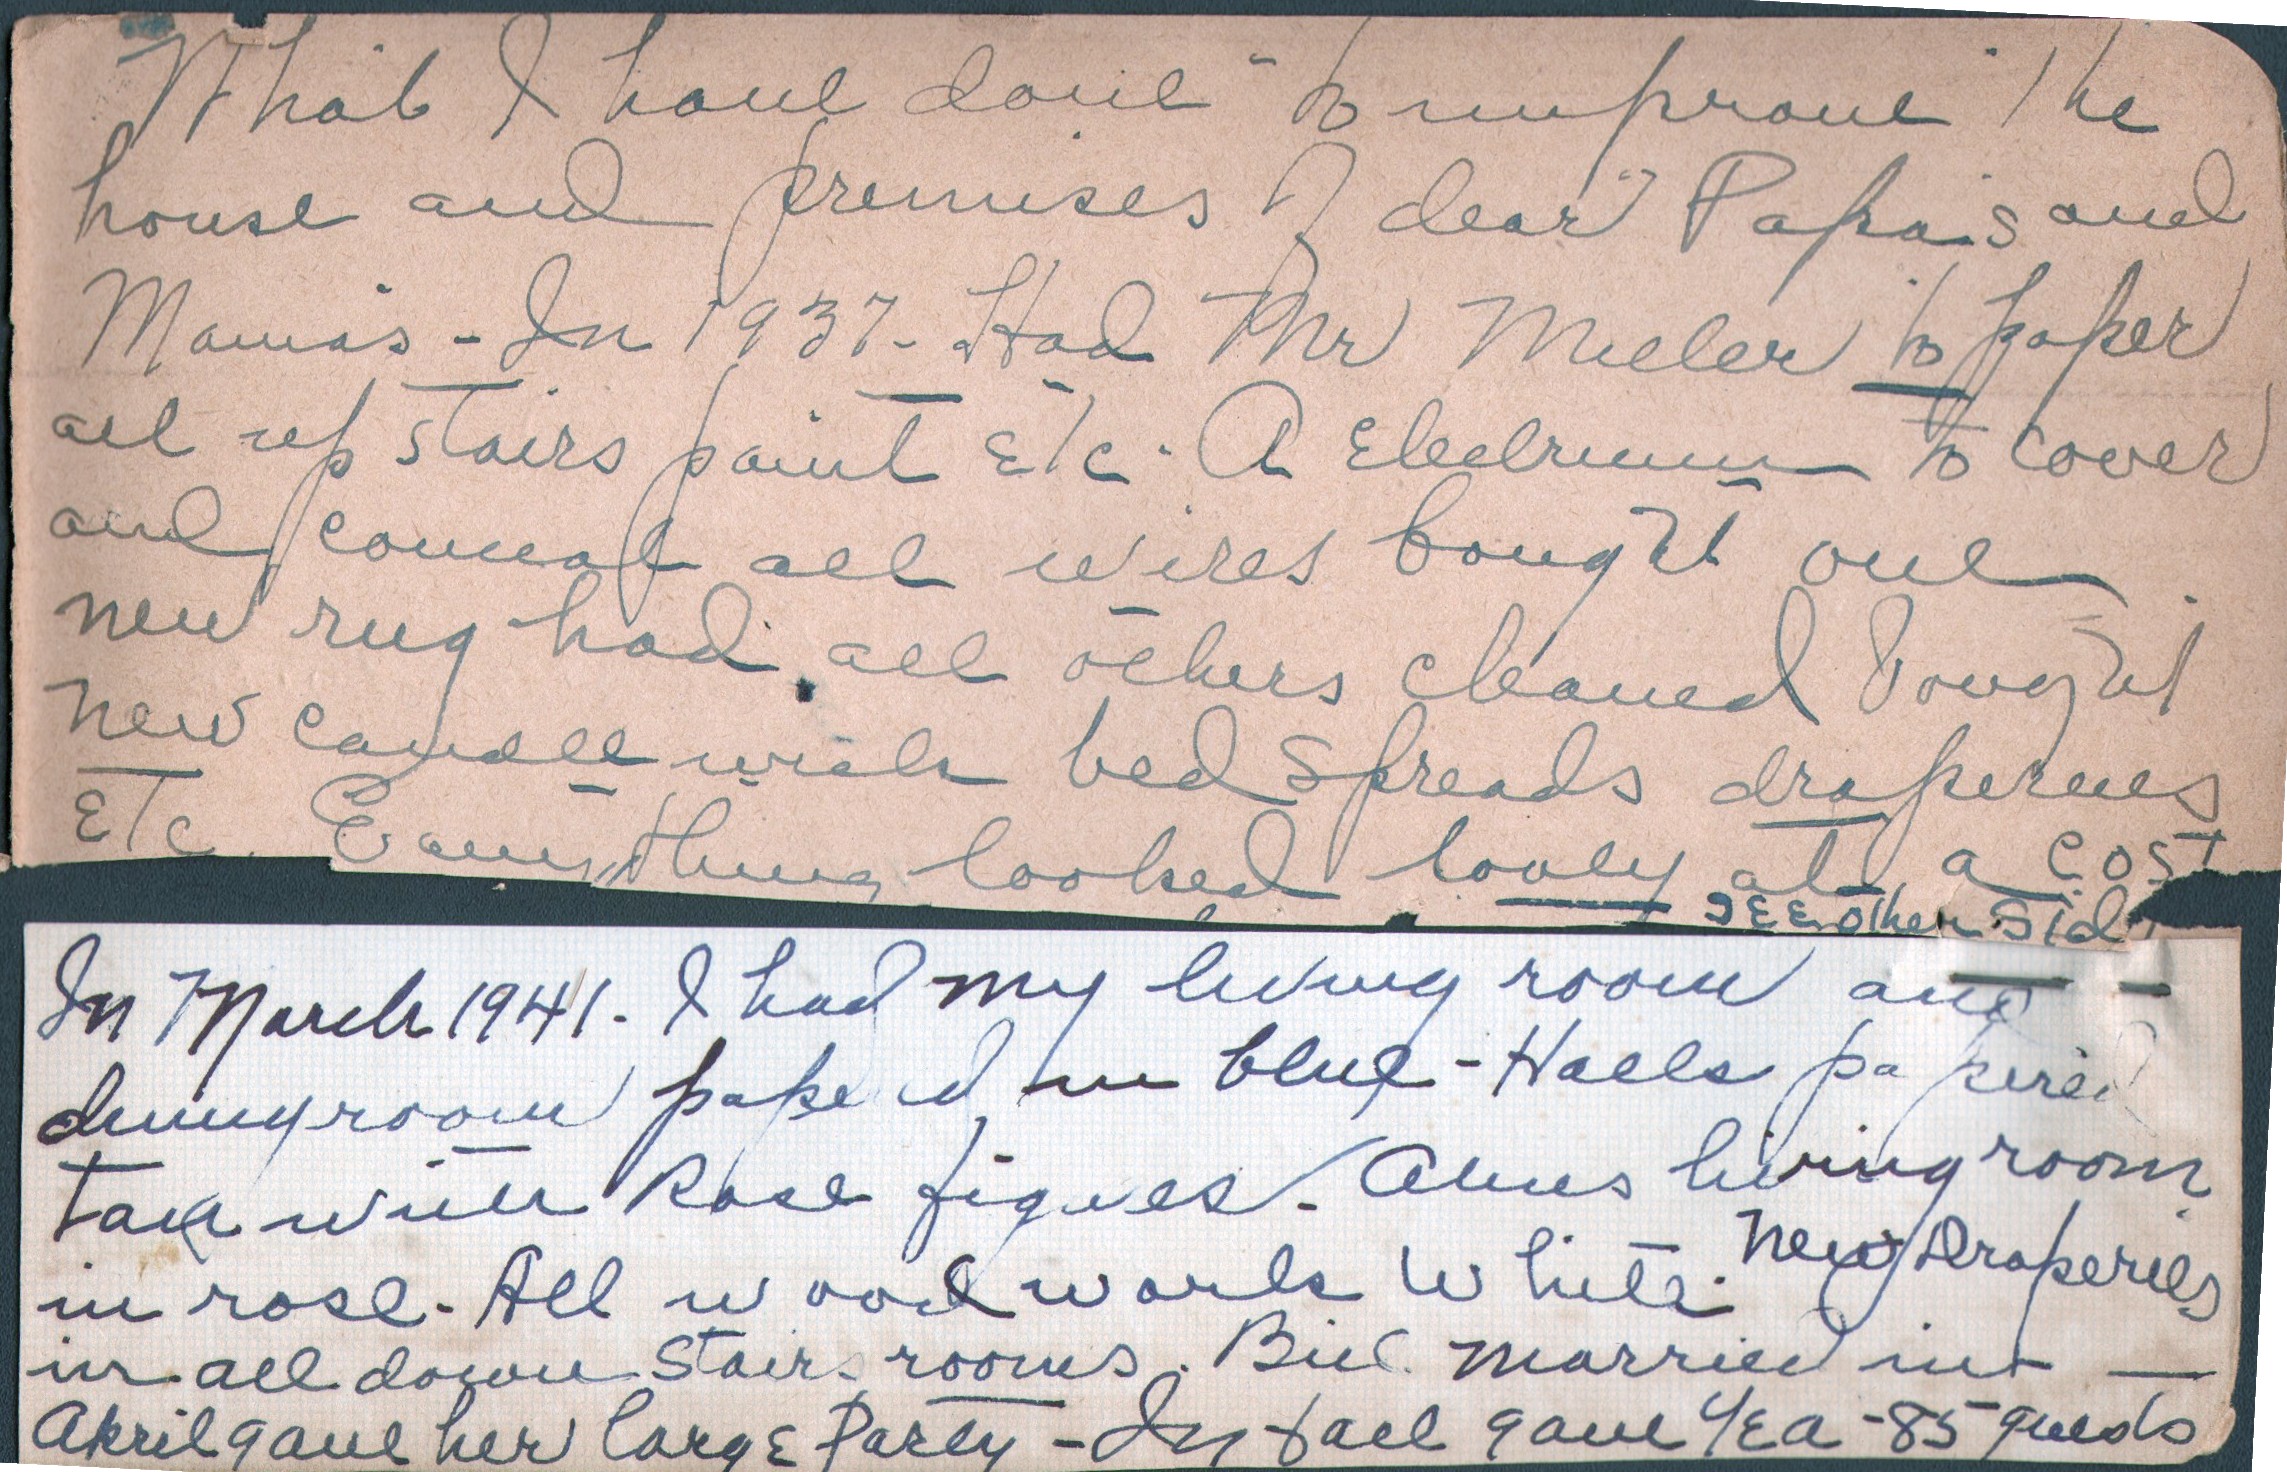 What I have done to improve the
house and premises of dear Papa's and
Mama's - In 1937 - Had Mr Miller to paper
all up stairs paint Etc. A Electrician to cover
and conceal all wires bought one
new rug had all others cleaned bought
new candle wick bed spreads draperies
Etc. Everything looked lovely at a cost
SEE other sid
In March 1941 - I had my living room and
diningroom papered in blue - Halls papered
tan with Rose figures - living room
in rose - All wood work white. New Draperies
in all down stairs rooms. Bill married in -
April gave her large Party - In fall gave Tea - 85 guests